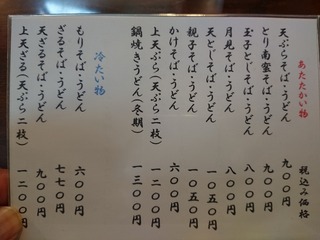 あたたかい物 税込み価格
天ぷらそば・うどん 九〇〇円
とり南蛮そば・うどん 九〇〇円
玉子とじそば・うどん 八〇〇円
月見そば・うどん 八〇〇円
天とじそば・うどん 一〇五〇円
親子そば・うどん 一〇五〇円
かけそば・うどん 六〇〇円
上天ぷら(天ぷら二枚) 一二〇〇円
鍋焼きうどん(冬期) 一三〇〇円
冷たい物
もりそば・うどん 六〇〇円
ざるそば・うどん 七七〇円
天ざるそば・うどん 九〇〇円
上天ざる(天ぷら二枚) 一二〇〇円